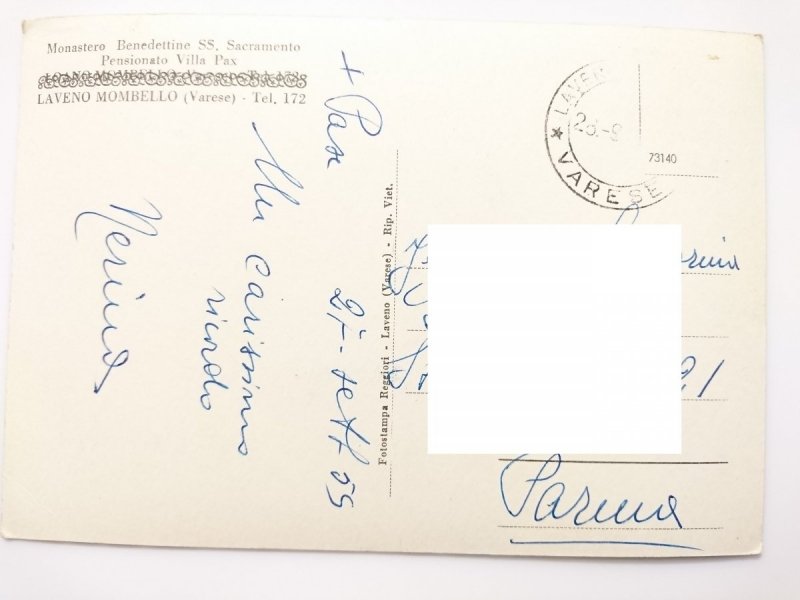 Monastero Benedettine SS. Sacramento
Pensionato Villa Pax
LAVENO MOMBELLO (Varese) - Tel. 172
+ Pax
27-sett 59
Un carissimo
ricordo
Nerina
Fotostampa Reggiori - Laveno (Varese) - Rip. Viet.
LAVEN
28.-9
VARESE
73140
Parma